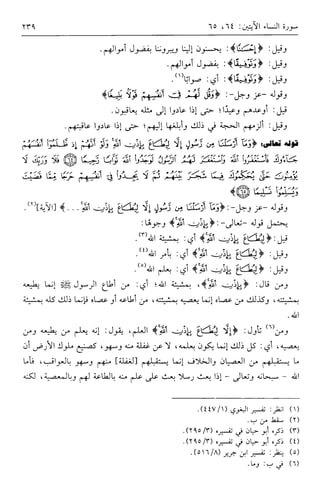 سورة النساء الآيتين: ٦٤، ٦٥ ٢٣٩
وقيل: ﴿وَتَوْفِيقًا﴾: يحسنون إلينا ويبروننا بفضول أموالهم.
وقيل: ﴿وَتَوْفِيقًا﴾: بفضول أموالهم.
وقيل: ﴿وَتَوْفِيقًا﴾: أي: صوابًا(١).
وقوله -عز وجل-: ﴿وَقُل لَّهُمْ فِي أَنفُسِهِمْ قَوْلًا بَلِيغًا﴾
قيل: أوعدهم وعيدًا؛ حتى إذا عادوا إلى مثله يعاقبون.
وقيل: ألزمهم الحجة في ذلك وأبلغها إليهم؛ حتى إذا عادوا عاقبتهم.
قوله تعالى: ﴿وَمَا أَرْسَلْنَا مِن رَّسُولٍ إِلَّا لِيُطَاعَ بِإِذْنِ اللَّهِ وَلَوْ أَنَّهُمْ إِذ ظَّلَمُوا أَنفُسَهُمْ
جَاءُوكَ فَاسْتَغْفَرُوا اللَّهَ وَاسْتَغْفَرَ لَهُمُ الرَّسُولُ لَوَجَدُوا اللَّهَ تَوَّابًا رَّحِيمًا ٦٤ فَلَا وَرَبِّكَ لَا
يُؤْمِنُونَ حَتَّى يُحَكِّمُوكَ فِيمَا شَجَرَ بَيْنَهُمْ ثُمَّ لَا يَجِدُوا فِي أَنفُسِهِمْ حَرَجًا مِّمَّا قَضَيْتَ
وَيُسَلِّمُوا تَسْلِيمًا ٦٥﴾
وقوله -عز وجل-: ﴿وَمَا أَرْسَلْنَا مِن رَّسُولٍ إِلَّا لِيُطَاعَ بِإِذْنِ اللَّهِ...﴾ [الآية](٢).
يحتمل قوله -تعالى-: ﴿بِإِذْنِ اللَّهِ﴾ وجوهًا:
قيل: ﴿إِلَّا لِيُطَاعَ بِإِذْنِ اللَّهِ﴾ أي: بمشيئة الله(٣).
وقيل: ﴿إِلَّا لِيُطَاعَ بِإِذْنِ اللَّهِ﴾ أي: بأمر الله(٤).
وقيل: ﴿إِلَّا لِيُطَاعَ بِإِذْنِ اللَّهِ﴾ أي: بعلم الله(٥).
ومن قال: ﴿إِلَّا لِيُطَاعَ بِإِذْنِ اللَّهِ﴾، بمشيئة الله؛ أي: من أطاع الرسول ﷺ إنما يطيعه
بمشيئته، وكذلك من عصاه إنما يعصيه بمشيئته، من أطاعه أو عصاه فإنما ذلك كله بمشيئة
الله.
ومن(٦) تأول: ﴿إِلَّا لِيُطَاعَ بِإِذْنِ اللَّهِ﴾ العلم، يقول: إنه يعلم من يطيعه ومن
يعصيه، أي: كل ذلك إنما يكون بعلمه، لا عن غفلة منه وسهو، كصنيع ملوك الأرض أن
ما يستقبلهم من العصيان والخلاف إنما يستقبلهم [لغفلة] منهم وسهو بالعواقب، فأما
الله - سبحانه وتعالى - إذا بعث رسلا بعث على علم منه بالطاعة لهم وبالمعصية، لكنه
(١) انظر: تفسير البغوي (١/ ٤٤٧).
(٢) سقط من ب.
(٣) ذكره أبو حيان في تفسيره (٣/ ٢٩٥).
(٤) ذكره أبو حيان في تفسيره (٣/ ٢٩٥).
(٥) ينظر: تفسير ابن جرير (٨/ ٥١٦).
(٦) في ب: وما.